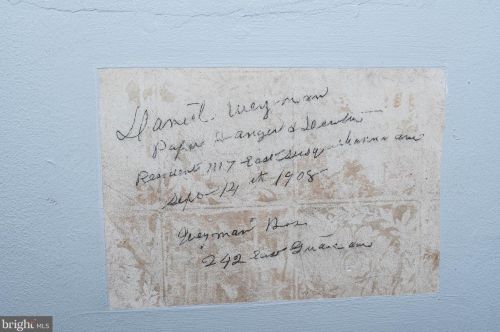 Daniel Weyman
Paper Hanger & Decorator
Resident 117 East Susquehanna ave
Sept 14th 1908
Weyman Bros
242 East ave
bright MLS